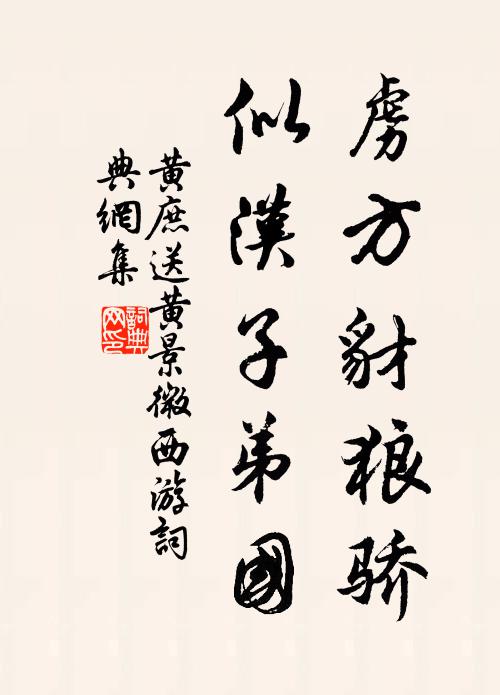 虏方豺狼骄
似漢子弟國
黃庶送黃景微西游詞
典網集
詞典网印